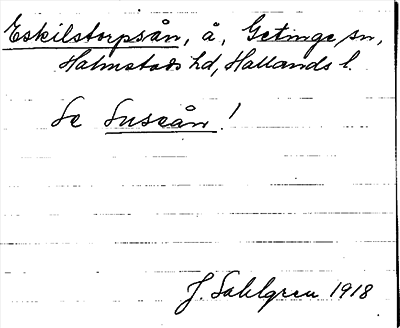 Eskilstorpsån, å, Getinge sn,
Halmstads hd, Hallands l.
Se Suseån!
J. Sahlgren 1918